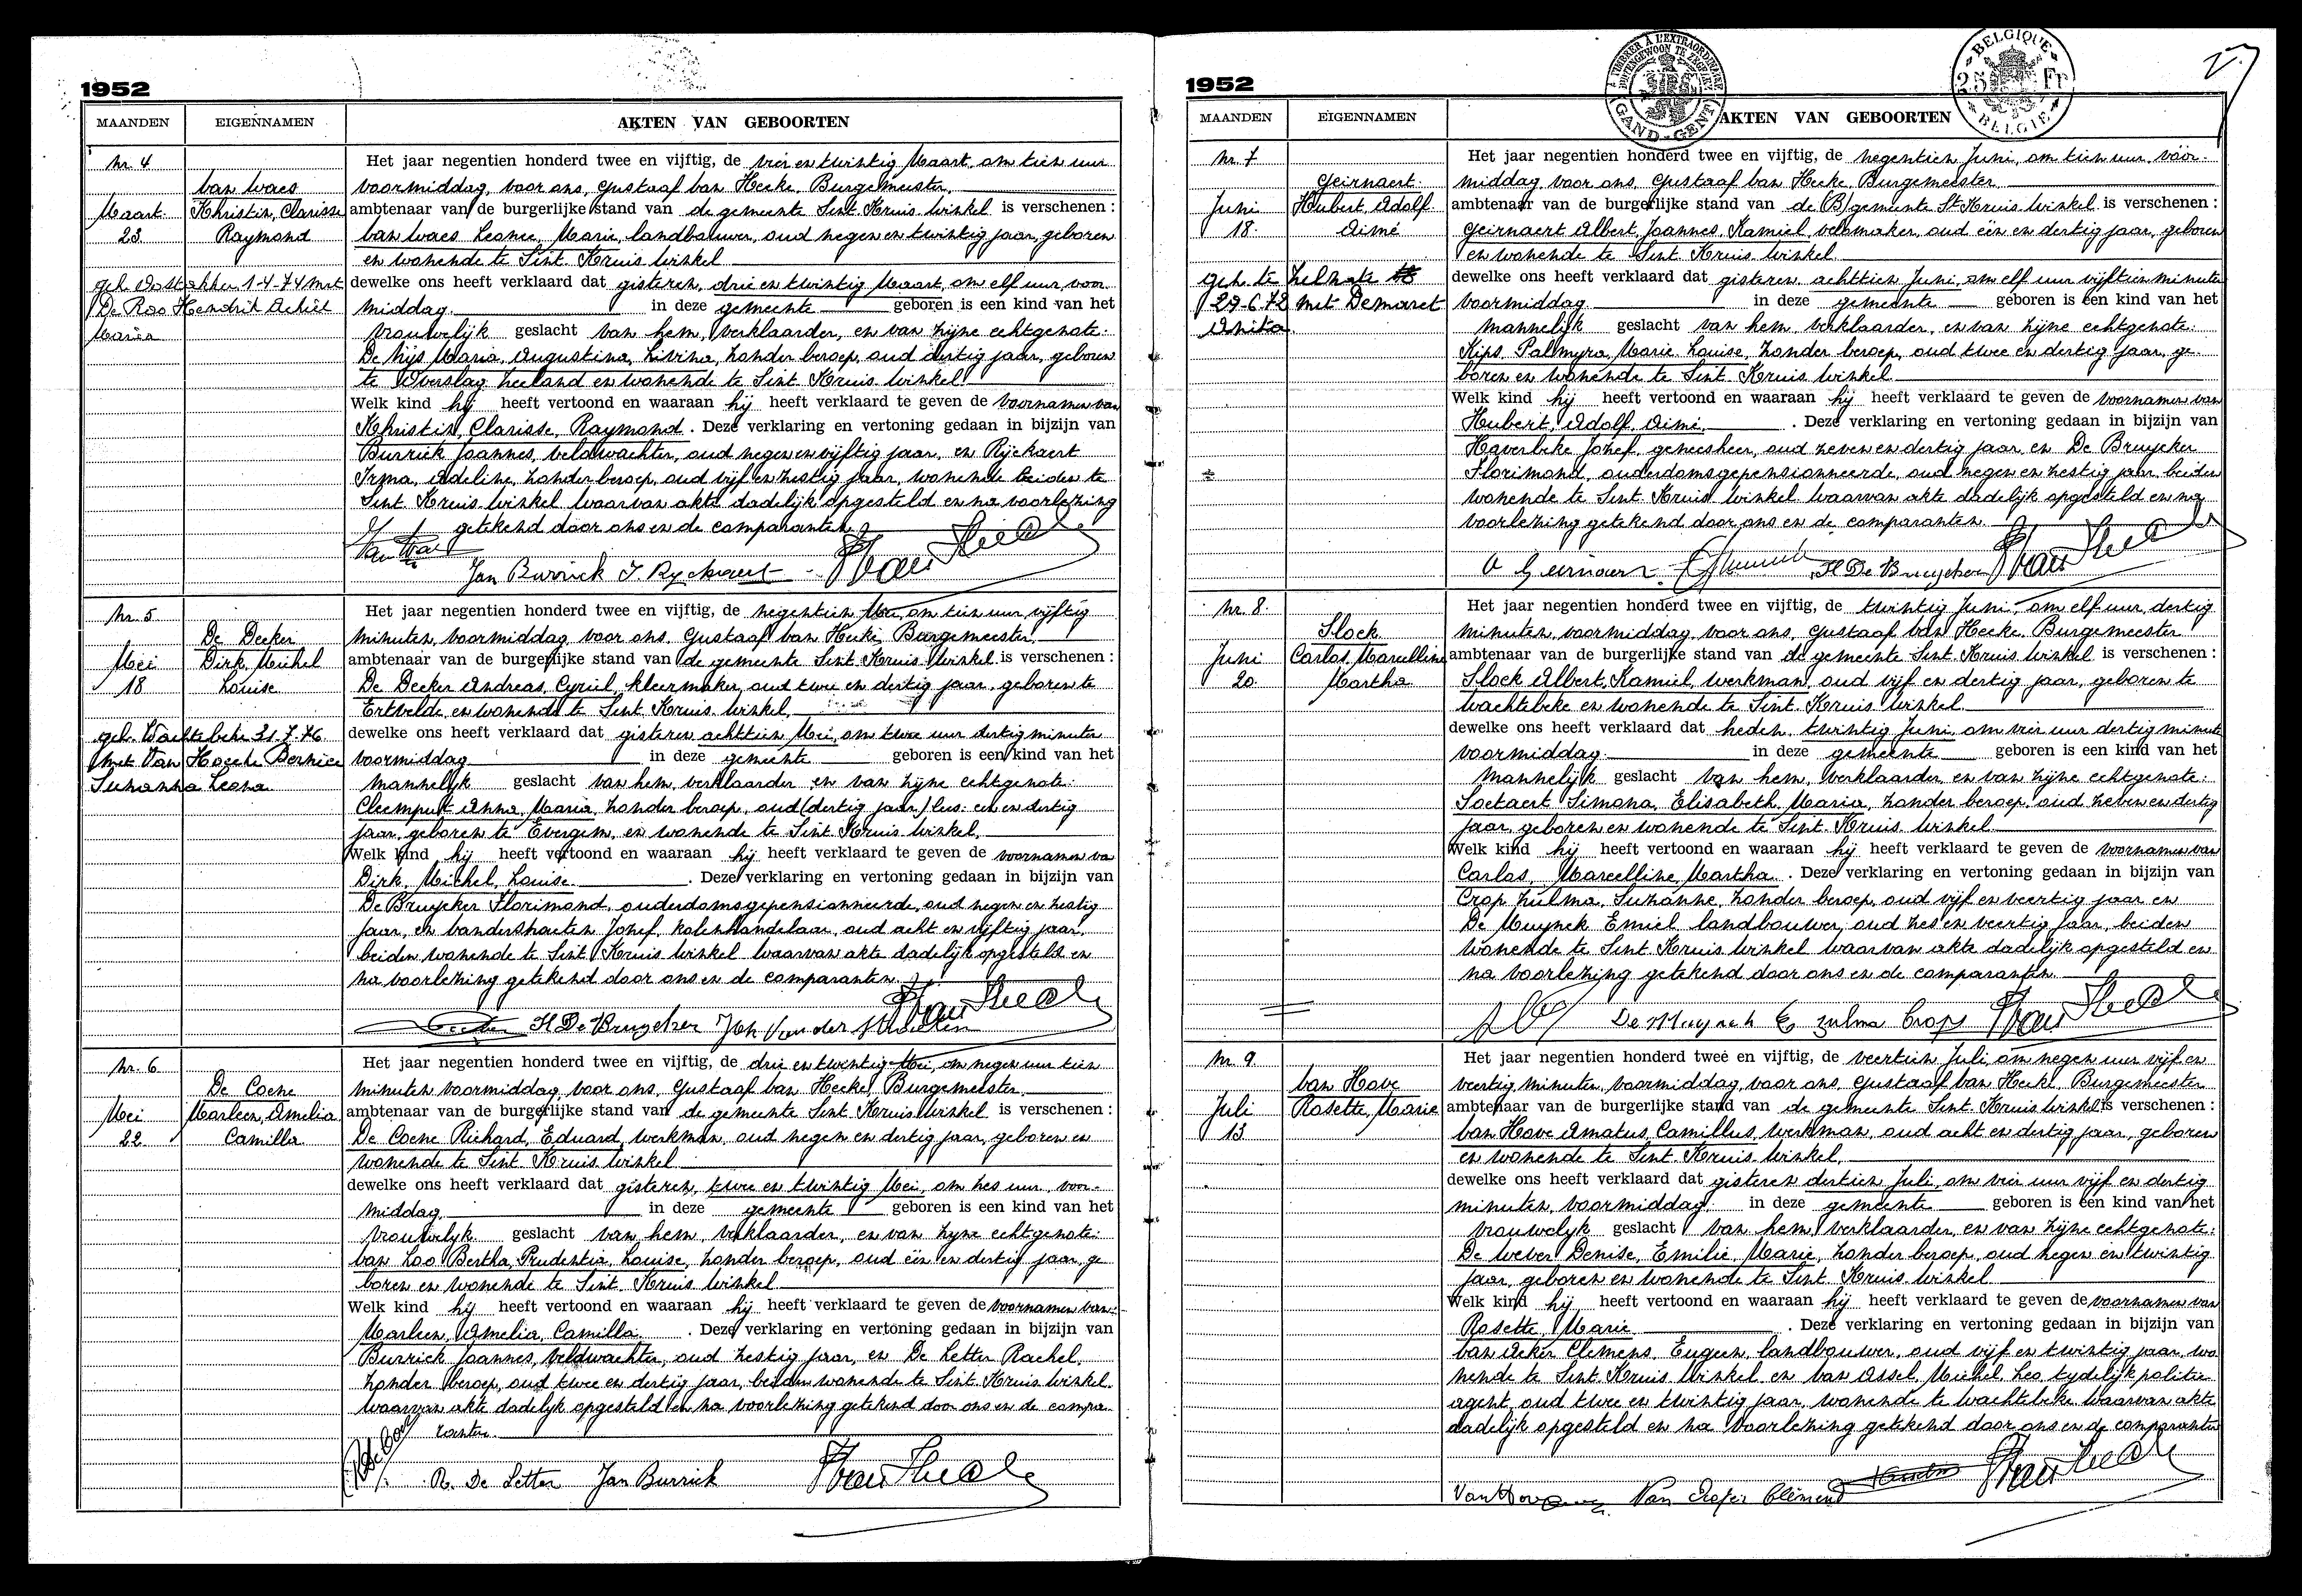 1952
MAANDEN EIGENNAMEN AKTEN VAN GEBOORTEN
Nr. 4
Van Waes
Maart Khristin, Clarisse
23 Raymond
geh. Oostakker 1-4-74 met
De Roo Hendrik Achiel
Maria
Het jaar negentien honderd twee en vijftig, de vier en twintig Maart, om tien uur
voormiddag, voor ons, Gustaaf Van Hecke, Burgemeester,
ambtenaar van de burgerlijke stand van de gemeente Sint Kruis Winkel is verschenen :
Van Waes Leonce, Marie, landbouwer, oud negen en twintig jaar, geboren
en wonende te Sint Kruis Winkel
dewelke ons heeft verklaard dat gisteren, drie en twintig Maart, om elf uur, voor
middag in deze gemeente geboren is een kind van het
vrouwelijk geslacht van hem, verklaarder, en van zijne echtgenote:
De Nijs Maria, Augustina, Livina, zonder beroep, oud dertig jaar, geboren
te Overslag Zeeland en wonende te Sint Kruis Winkel
Welk kind hij heeft vertoond en waaraan hij heeft verklaard te geven de voornamen van
Khristin, Clarisse, Raymond. Deze verklaring en vertoning gedaan in bijzijn van
Burrick Joannes, veldwachter, oud negen en vijftig jaar, en Rijckaert
Irma, Adeline, zonder beroep, oud vijf en zestig jaar, wonende beiden te
Sint Kruis Winkel waarvan akte dadelijk opgesteld en na voorlezing
getekend door ons en de comparanten.
Jan Burrick I. Ryckaert Van Hecke
Nr. 5
De Decker
Mei Dirk, Michel
18 Louise
geh. Wachtebeke 31.7.76
met Van Hoecke Bernice
Suzanna Leona
Het jaar negentien honderd twee en vijftig, de negentien Mei, om tien uur, vijftig
minuten, voormiddag, voor ons, Gustaaf Van Hecke, Burgemeester,
ambtenaar van de burgerlijke stand van de gemeente Sint Kruis Winkel is verschenen :
De Decker Andreas, Cyriel, kleermaker, oud twee en dertig jaar, geboren te
Ertvelde, en wonende te Sint Kruis Winkel,
dewelke ons heeft verklaard dat gisteren achttien Mei, om twee uur dertig minuten
voormiddag in deze gemeente geboren is een kind van het
mannelijk geslacht van hem, verklaarder, en van zijne echtgenote:
Cleemput Anna, Maria, zonder beroep, oud (dertig jaar) lees: een en dertig
jaar, geboren te Evergem, en wonende te Sint Kruis Winkel.
Welk kind hij heeft vertoond en waaraan hij heeft verklaard te geven de voornamen va
Dirk, Michel, Louise. Deze verklaring en vertoning gedaan in bijzijn van
De Bruycker Florimond, ouderdomsgepensionneerde, oud negen en zestig
jaar, en Vanderstraeten Jozef, kolenhandelaar, oud acht en vijftig jaar,
beiden wonende te Sint Kruis Winkel waarvan akte dadelijk opgesteld en
na voorlezing getekend door ons en de comparanten.
Fl De Bruycker Van Hecke
Nr. 6
De Coene
Mei Marleen, Amelia
22 Camilla
Het jaar negentien honderd twee en vijftig, de drie en twintig Mei, om negen uur tien
minuten voormiddag, voor ons, Gustaaf Van Hecke, Burgemeester
ambtenaar van de burgerlijke stand van de gemeente Sint Kruis Winkel is verschenen :
De Coene Richard, Eduard, werkman, oud negen en dertig jaar, geboren en
wonende te Sint Kruis Winkel
dewelke ons heeft verklaard dat gisteren, twee en twintig Mei, om zes uur, voor-
middag in deze gemeente geboren is een kind van het
vrouwelijk geslacht van hem, verklaarder, en van zijne echtgenote:
Van Loo Bertha, Prudentia, Louise, zonder beroep, oud één en dertig jaar, ge
boren en wonende te Sint Kruis Winkel
Welk kind hij heeft vertoond en waaraan hij heeft verklaard te geven de voornamen van
Marleen, Amelia, Camilla. Deze verklaring en vertoning gedaan in bijzijn van
Burrick Joannes, veldwachter, oud zestig jaar, en De Letter Rachel,
zonder beroep, oud twee en dertig jaar, beiden wonende te Sint Kruis Winkel.
waarvan akte dadelijk opgesteld en na voorlezing getekend door ons en de compa-
ranten.
R. De Letter Jan Burrick Van Hecke
1952
A TIMBRER A L'EXTRAORDINAIRE BUITENGEWOON TE ZEGELEN GAND-GENT
BELGIQUE 25 Fr BELGIE
MAANDEN EIGENNAMEN AKTEN VAN GEBOORTEN
Nr. 7
Geirnaert
Juni Hubert, Adolf
18 Aimé
geh. te Zelzate
29.6.72 met Demaret
Anita
Het jaar negentien honderd twee en vijftig, de negentien Juni, om tien uur, voor-
middag voor ons, Gustaaf Van Hecke, Burgemeester
ambtenaar van de burgerlijke stand van de (B) gemeente St Kruis Winkel is verschenen :
Geirnaert Albert, Joannes, Kamiel, velomaker, oud één en dertig jaar, geboren
en wonende te Sint Kruis Winkel
dewelke ons heeft verklaard dat gisteren achttien Juni, om elf uur vijftien minuten
voormiddag in deze gemeente geboren is een kind van het
mannelijk geslacht van hem, verklaarder, en van zijne echtgenote:
Kips Palmyra, Marie Louise, zonder beroep, oud twee en dertig jaar, ge-
boren en wonende te Sint Kruis Winkel
Welk kind hij heeft vertoond en waaraan hij heeft verklaard te geven de voornamen van
Hubert, Adolf, Aimé. Deze verklaring en vertoning gedaan in bijzijn van
Haverbeke Jozef, geneesheer, oud zeven en dertig jaar en De Bruycker
Florimond, ouderdomsgepensionneerde, oud negen en zestig jaar, beiden
wonende te Sint Kruis Winkel waarvan akte dadelijk opgesteld en na
voorlezing getekend door ons en de comparanten.
A Geirnaert Fl De Bruycker Van Hecke
Nr. 8
Slock
Juni Carlos Marcelline
20 Martha
Het jaar negentien honderd twee en vijftig, de twintig Juni, om elf uur, dertig
minuten, voormiddag, voor ons, Gustaaf Van Hecke, Burgemeester
ambtenaar van de burgerlijke stand van de gemeente Sint Kruis Winkel is verschenen :
Slock Albert, Kamiel, werkman, oud vijf en dertig jaar, geboren te
Wachtebeke en wonende te Sint Kruis Winkel
dewelke ons heeft verklaard dat heden, twintig Juni, om vier uur dertig minuten
voormiddag in deze gemeente geboren is een kind van het
mannelijk geslacht van hem, verklaarder, en van zijne echtgenote:
Soetaert Simona, Elisabeth, Maria, zonder beroep, oud zeven en dertig
jaar, geboren en wonende te Sint Kruis Winkel
Welk kind hij heeft vertoond en waaraan hij heeft verklaard te geven de voornamen van
Carlos, Marcelline, Martha. Deze verklaring en vertoning gedaan in bijzijn van
Crop Zulma, Suzanne, zonder beroep, oud vijf en veertig jaar en
De Muynck Emiel landbouwer, oud zes en veertig jaar, beiden
wonende te Sint Kruis Winkel waarvan akte dadelijk opgesteld en
na voorlezing getekend door ons en de comparanten
De Muynck E Zulma Crop Van Hecke
Nr. 9
Van Hove
Juli Rosette, Marie
13
Het jaar negentien honderd twee en vijftig, de veertien Juli om negen uur vijf en
veertig minuten, voormiddag, voor ons, Gustaaf Van Hecke, Burgemeester
ambtenaar van de burgerlijke stand van de gemeente Sint Kruis Winkel is verschenen :
Van Hove Amatus, Camillus, werkman, oud acht en dertig jaar, geboren
en wonende te Sint Kruis Winkel,
dewelke ons heeft verklaard dat gisteren dertien Juli, om vier uur vijf en dertig
minuten, voormiddag in deze gemeente geboren is een kind van het
vrouwelyk geslacht van hem, verklaarder, en van zijne echtgenote:
De Wever Denise, Emilie, Marie, zonder beroep, oud negen en twintig
jaar, geboren en wonende te Sint Kruis Winkel
Welk kind hij heeft vertoond en waaraan hij heeft verklaard te geven de voornamen van
Rosette, Marie. Deze verklaring en vertoning gedaan in bijzijn van
Van Acker Clemens, Eugeen, landbouwer, oud vijf en twintig jaar, wo
nende te Sint Kruis Winkel en Van Assel, Michel, Leo, tydelijk politie
agent, oud twee en twintig jaar, wonende te Wachtebeke waarvan akte
dadelijk opgesteld en na voorlezing getekend door ons en de comparanten
Van Hove Van Acker Clément Van Hecke